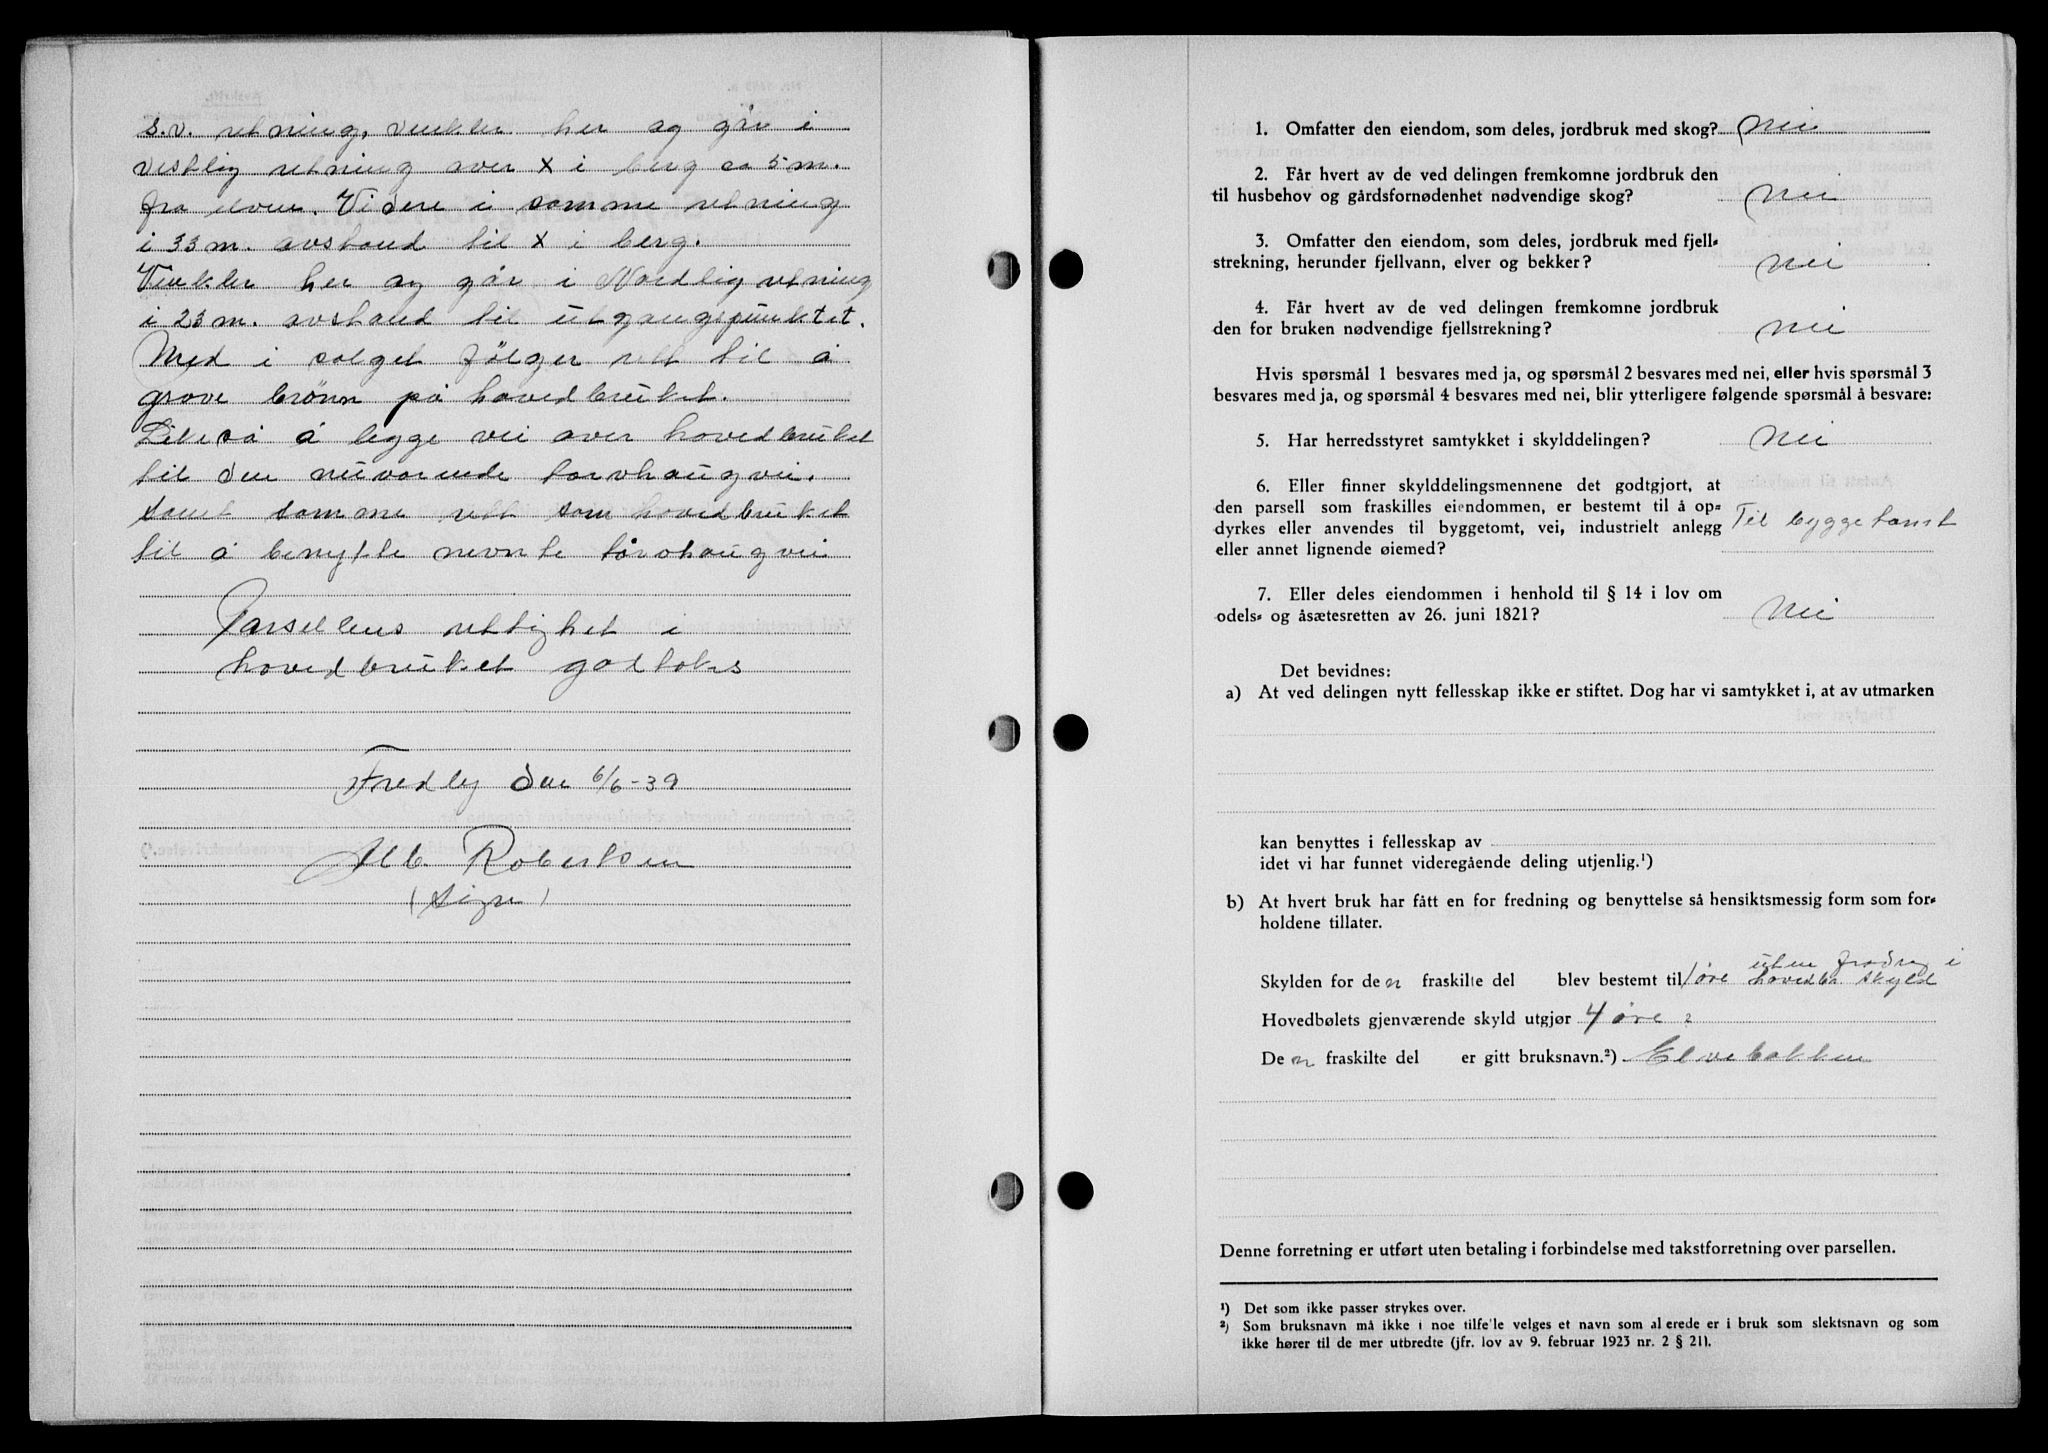 s.v. retning, vinkler her og går i
vestlig retning over x i berg ca 5 m.
fra elven. Videre i samme retning
i 33 m. avstand til x i berg.
Vinkler her og går i Nordlig retning
i 23 m. avstand til utgangspunktet.
Med i salget følger rett til å
grave brønn på hovedbruket.
Likeså å legge vei over hovedbruket
til den nuværende torvhaugvei.
samt samme rett som hovedbruket
til å benytte nevnte torvhaugvei
Parsellens rettighet i
hovedbruket godtaks
Fredly den 6/6-39
Alb Robertsen
(sign)
1. Omfatter den eiendom, som deles, jordbruk med skog? Nei
2. Får hvert av de ved delingen fremkomne jordbruk den
til husbehov og gårdsfornødenhet nødvendige skog? Nei
3. Omfatter den eiendom, som deles, jordbruk med fjell-
strekning, herunder fjellvann, elver og bekker? Nei
4. Får hvert av de ved delingen fremkomne jordbruk
den for bruken nødvendige fjellstrekning? Nei
Hvis spørsmål 1 besvares med ja, og spørsmål 2 besvares med nei, eller hvis spørsmål 3
besvares med ja, og spørsmål 4 besvares med nei, blir ytterligere følgende spørsmål å besvare:
5. Har herredsstyret samtykket i skylddelingen? Nei
6. Eller finner skylddelingsmennene det godtgjort, at
den parsell som fraskilles eiendommen, er bestemt til å op-
dyrkes eller anvendes til byggetomt, vei, industrielt anlegg Til byggetomt
eller annet lignende øiemed?
7. Eller deles eiendommen i henhold til § 14 i lov om
odels- og åsætesretten av 26. juni 1821? Nei
Det bevidnes:
a) At ved delingen nytt fellesskap ikke er stiftet. Dog har vi samtykket i, at av utmarken
kan benyttes i fellesskap av
idet vi har funnet videregående deling utjenlig.¹)
b) At hvert bruk har fått en for fredning og benyttelse så hensiktsmessig form som for-
holdene tillater.
uten fradrag i
Skylden for den fraskilte del blev bestemt til 1 øre hovedbr skyld
Hovedbølets gjenværende skyld utgjør 4 øre
Den fraskilte del er gitt bruksnavn.²) Elvebakken
Denne forretning er utført uten betaling i forbindelse med takstforretning over parsellen.
¹) Det som ikke passer strykes over.
²) Som bruksnavn må ikke i noe tilfe'le velges et navn som al erede er i bruk som slektsnavn og som
ikke hører til de mer utbredte (jfr. lov av 9. februar 1923 nr. 2 § 21).